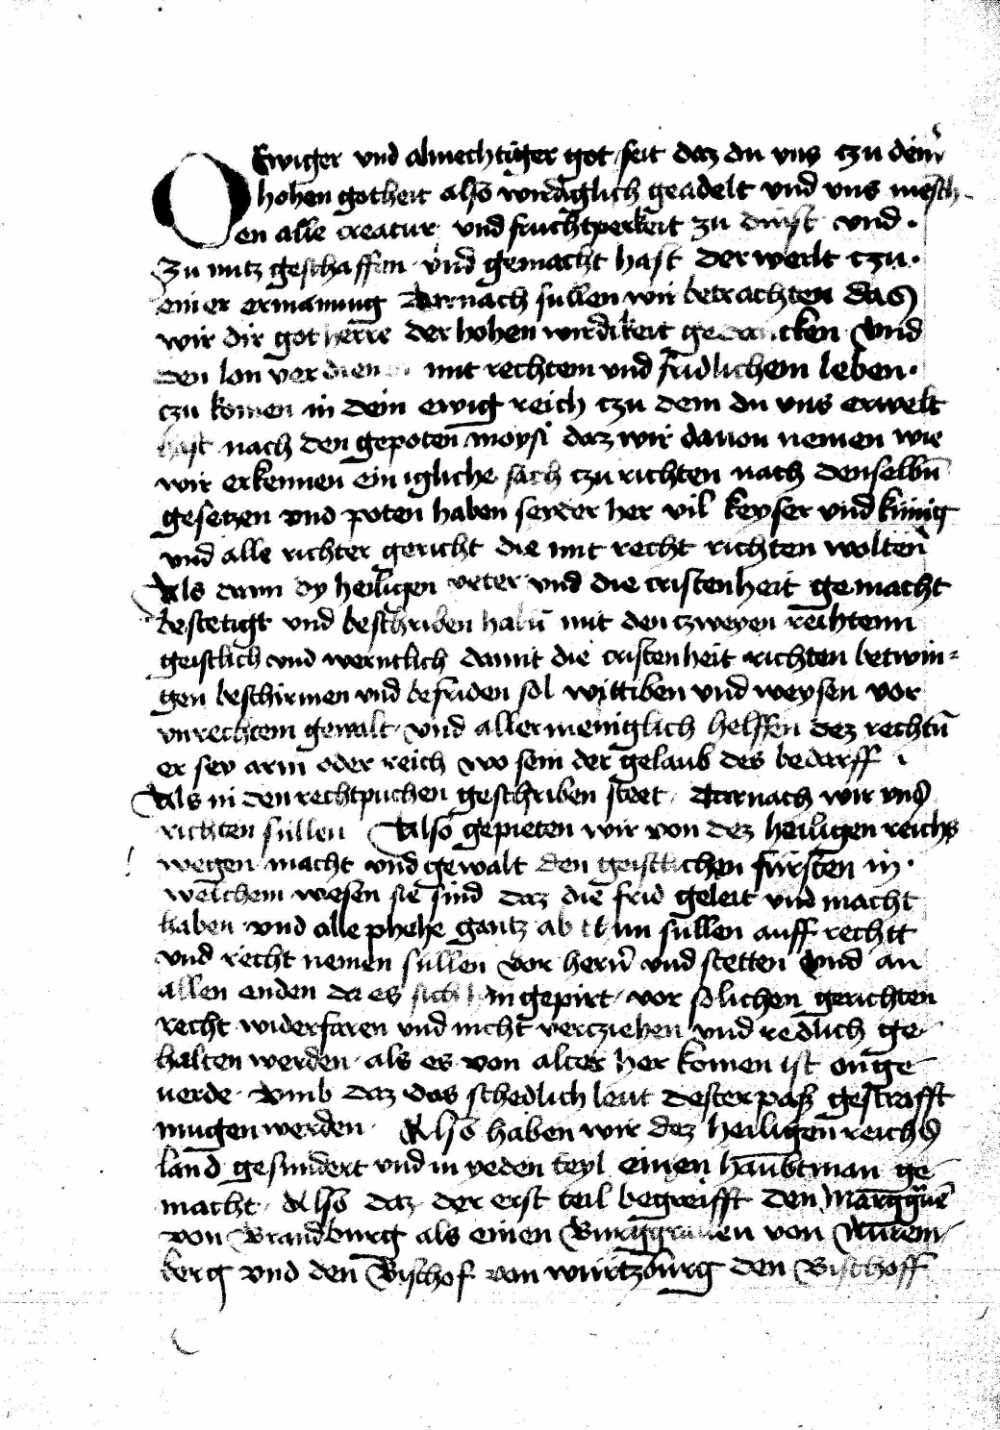 O Ewiger vnd almechtiger got seit daz du vns czu deiner
hohen gotheit also wirdiglich geadelt vnd vns mesch-
en alle creatur vnd fruchtperkeit zu dinst vnd.
zu nutz geschaffen vnd gemacht hast der werlt czu.
einer ermanung Darnach sullen wir betrachten das
wir dir got herre der hohen wirdikeit gedancken Vnd
den lon verdien mit rechtem vnd fridlichem leben.
czu komen in dein ewig reich czu dem du vns erwelt
hast nach den gepoten moysi daz wir dauon nemen wie
wir erkennen ein igliche sach czu richten nach denselbn̄
gesetzen vnd poten haben seyder her vil keyser vnd künig
vnd alle richter gericht die mit recht richten wolten
Als dann dy heiligen veter vnd die cristenheit gemacht
bestetigt vnd beschriben habn̄ mit den zweyen rechtenn
geistlich vnd werntlich damit die cristenheit richten betwin=
gen beschirmen vnd befriden sol wittiben vnd weysen vor
vnrechtem gewalt vnd allermeniglich helffen dez rechtn̄
er sey arm oder reich wo sein der gelaub des bedarff
Als in den rechtpuchen geschriben steet. Darnach wir vns
richten süllen Also gepieten wir von dez heiligen reichs
wegen macht vnd gewalt den geistlichen fürsten in.
welchem wesen sie sind daz die frid geleit vnd macht
haben vnd alle phehe gantz ab ttun sullen auff rechtt
vnd recht nemen süllen vor hern̄ vnd stetten Vnd an
allen enden da es sich in gepirt vor solichen gerichten
recht widerfaren vnd nicht verczihen vnd redlich ge-
halten werden als es von alter her komen ist on ge-
uerde. Vmb daz das schedlich leut dester paß gestrafft
mugen werden. Also haben wir dez heiligen reichs
land gesundert vnd in yeden teyl einen haubtman ge-
macht. Also daz der erst teil begreifft den Marggūe
von Brandburg als einen Burggrauen von Nurem-
berg vnd den Bischof von würtzburg den Bischoff